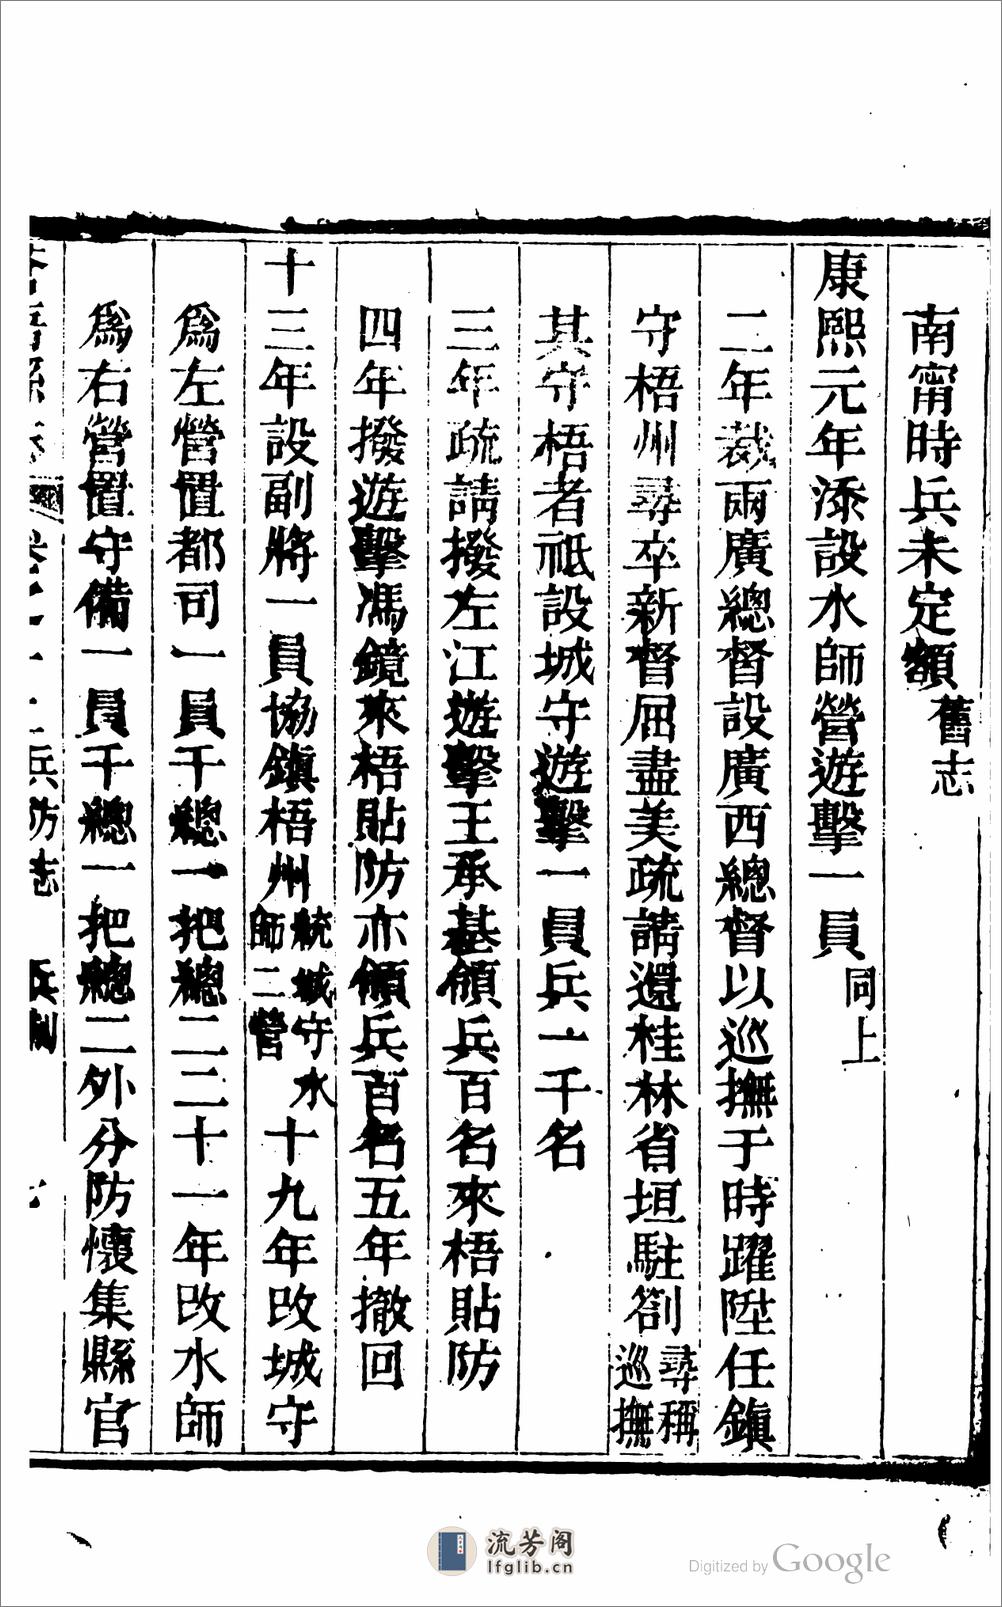 南甯時兵未定額舊志
康熙元年添設水師營遊擊一員同上
二年裁兩廣總督設廣西總督以巡撫于時躍陞任鎮
守梧州尋卒新督屈盡美疏請還桂林省垣駐劄尋稱巡撫
其守梧者祇設城守遊擊一員兵一千名
三年疏請撥左江遊擊王承基領兵百名來梧貼防
四年撥遊擊馮鏡來梧貼防亦領兵百名五年撤回
十三年設副將一員協鎮梧州統城守水師二營十九年改城守
爲左營置都司一員千總一把總二二十一年改水師
爲右營置守備一員千總一把總二外分防懷集縣官
蒼梧縣志 卷之十一 兵防志 兵制 七
流芳阁
lfglib.cn
Digitized by Google